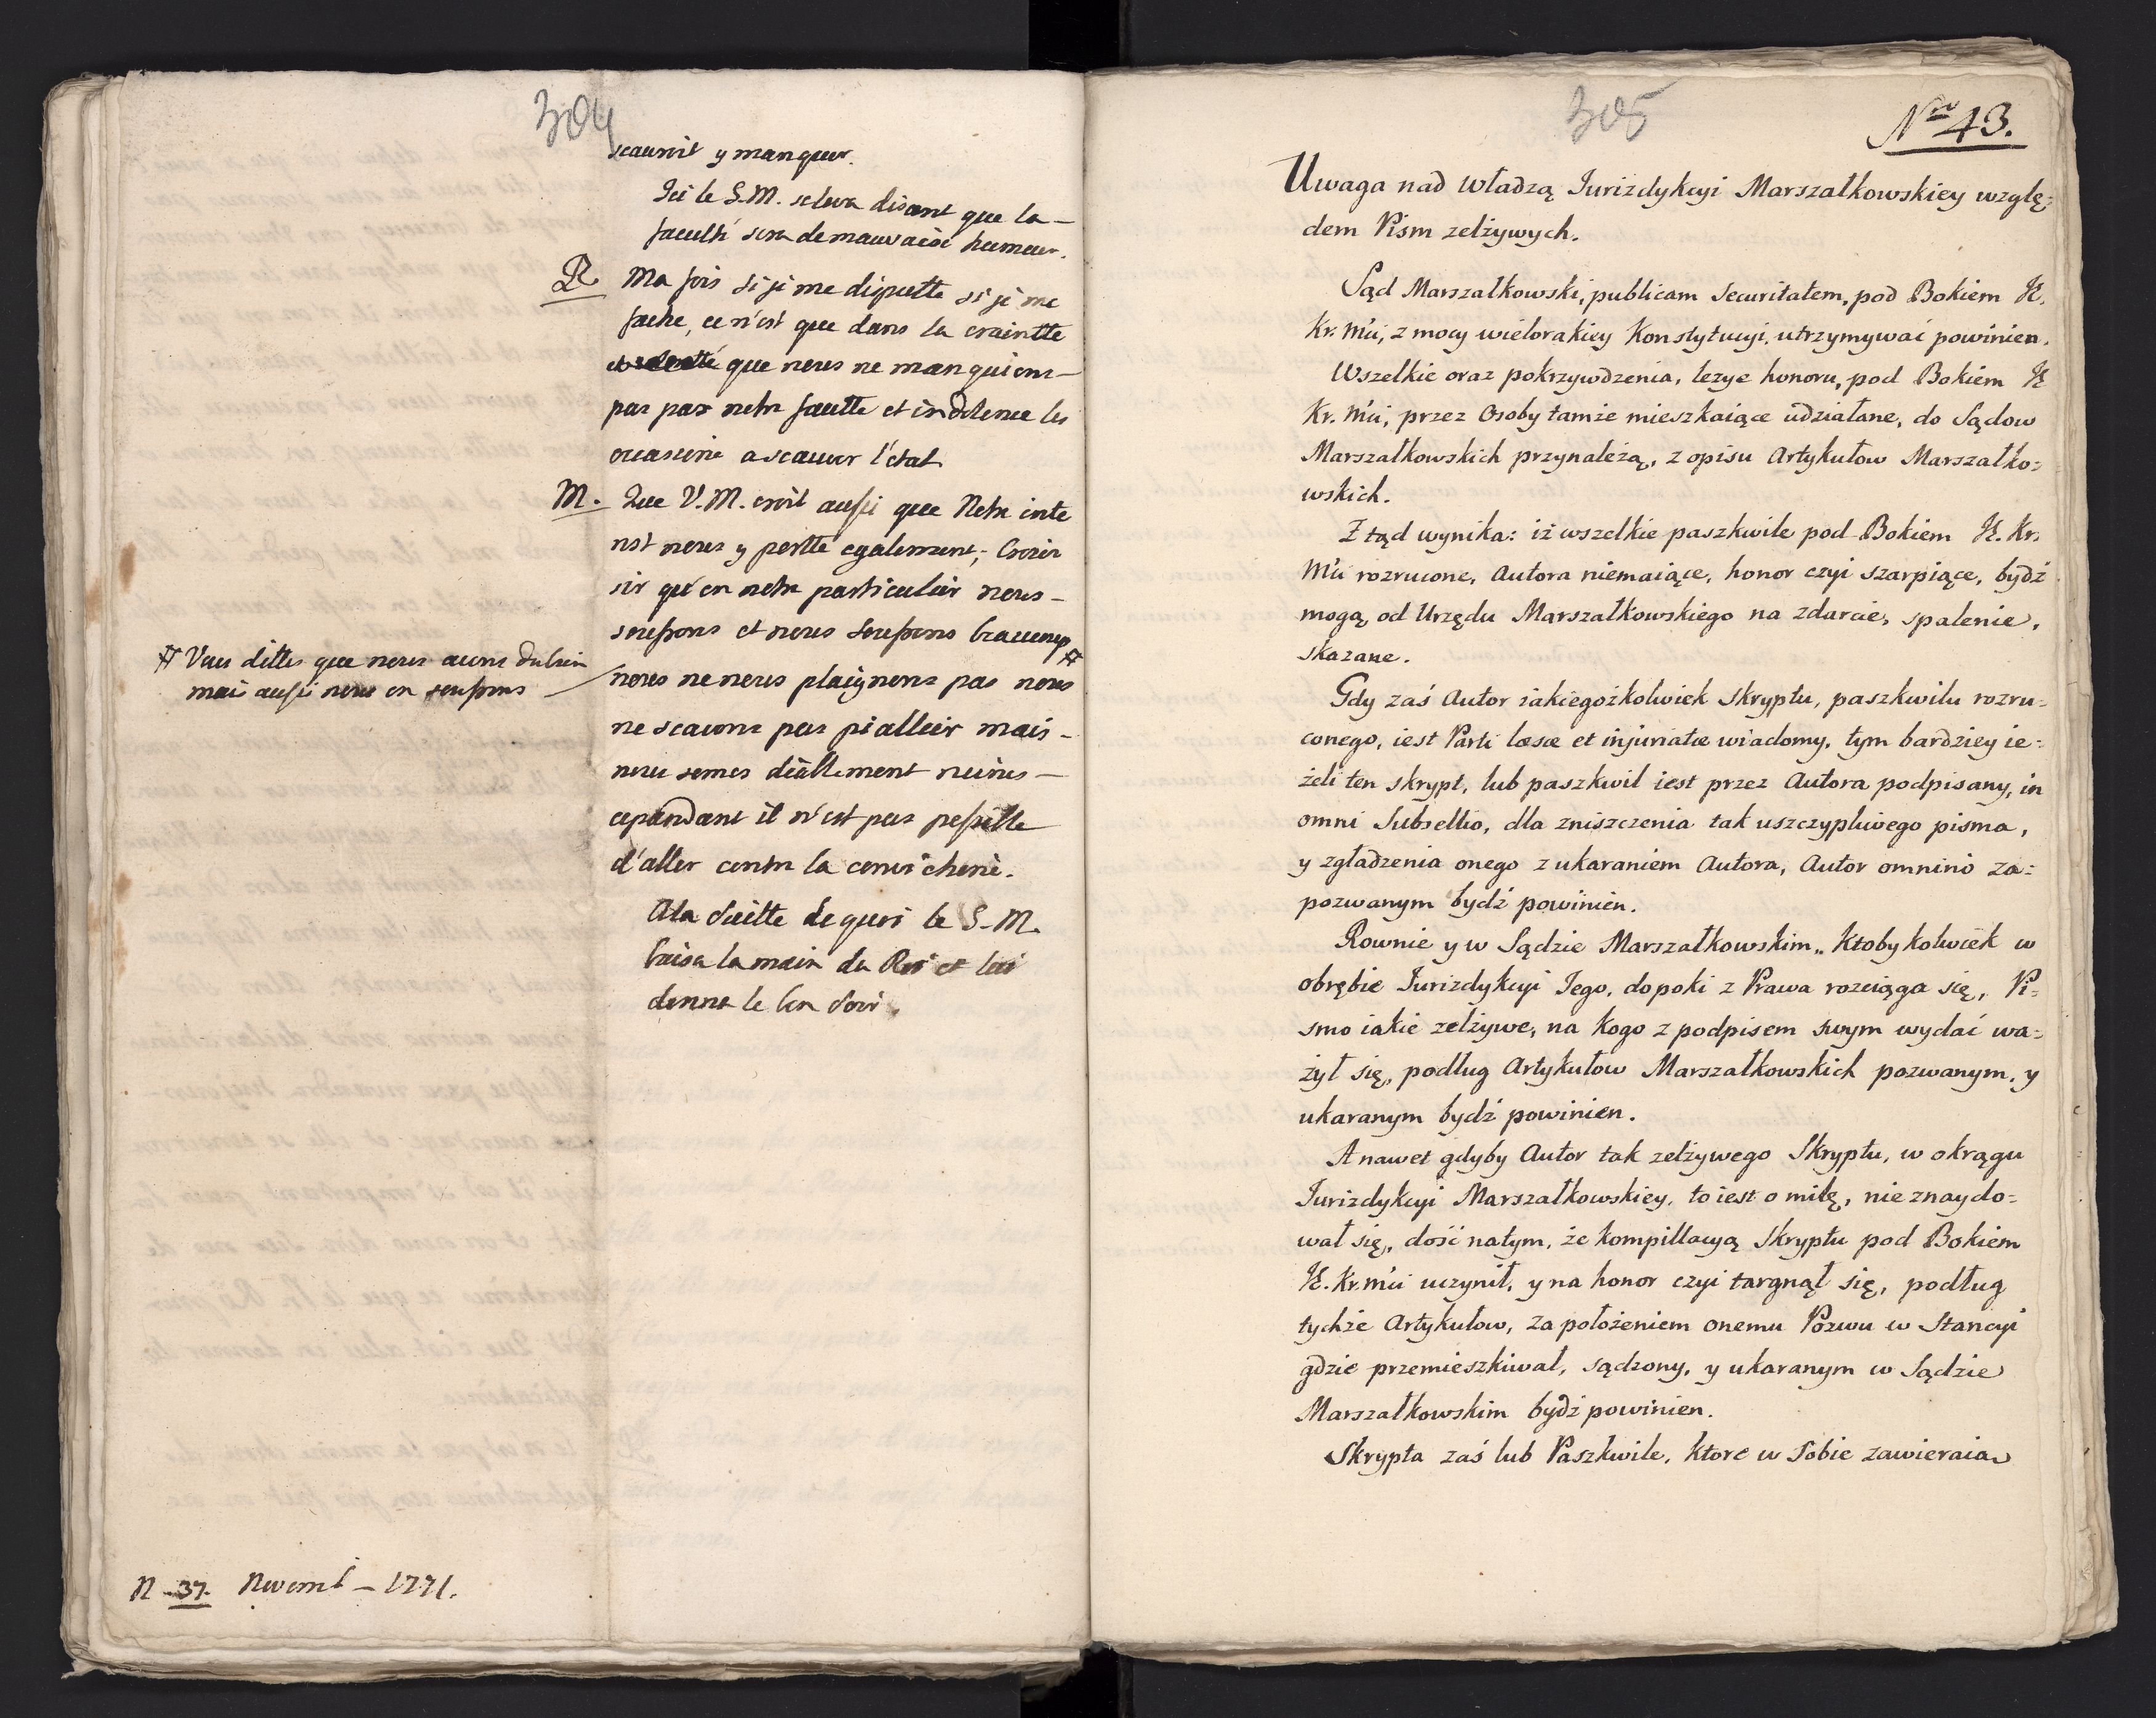 304
scauroit y manquer.
Ici le S.M. se leva disant que la -
faculté sera de mauvaise humeur.
R Ma fois si je me dispustte si je me
fache, ce n'est que dans la craintte
que nous ne manquions -
pas par notre fautte et indolence les
occasions a scauver l'état
M. Que V.M. croit aussi que Notre inte
rest nous y portte egalement; Croier
sir qu'en notre particulier nous -
soufrons et nous soufrons beaucoup #
# Vous dittes que nous avons du bien
mais aussi nous en soufrons
nous ne nous plaignons pas nous
ne scavons pas piallier mais -
nous somes réellement ruinés -
cepandant il n'est pas possible
d'aller contre la convicherie.
A la suitte de quoi le S-M.
baisa la main du Roi et lui
donna le bon soir.
N-37. Novemb - 1771.
305
Nro 43.
Uwaga nad władzą Jurizdykcyi Marszałkowskiey wzglę=
dem Pism zelżywych.
Sąd Marszałkowski, publicam securitatem, pod Bokiem JK.
Kr. Mci, z mocy wielorakiey Konstytucyi, utrzymywać powinien.
Wszelkie oraz pokrzywdzenia, lezye honoru, pod Bokiem JK
Kr. Mci, przez Osoby tamże mieszkaiące udziałane, do Sądow
Marszałkowskich przynależą, z opisu Artykułow Marszałko=
wskich.
Z tąd wynika: iż wszelkie paszkwile pod Bokiem JK. Kr.
Mci rozrucone, Autora niemaiące, honor czyi szarpiące, bydź
mogą, od Urzędu Marszałkowskiego na zdarcie, spalenie,
skazane.
Gdy zaś Autor iakiegożkolwiek skryptu, paszkwilu rozru=
conego, iest Parti læsæ et injuriatæ wiadomy, tym bardziey ie=
żeli ten skrypt, lub paszkwil iest przez Autora podpisany, in
omni Subsellio, dla zniszczenia tak uszczypliwego pisma,
y zgładzenia onego z ukaraniem Autora, Autor omnino za=
pozwanym bydź powinien.
Rownie y w Sądzie Marszałkowskim, Ktoby kolwiek w
obrębie Jurizdykcyi Jego, dopoki z Prawa rozciąga się, Pi=
smo iakie zelżywe, na kogo z podpisem swym wydać wa=
żył się, podług Artykułow Marszałkowskich pozwanym, y
ukaranym bydź powinien.
A nawet gdyby Autor tak zelżywego Skryptu, w okrągu
Jurizdykcyi Marszałkowskiey, to iest o milę, nie znaydo=
wał się, dość natym, że kompillacyą Skryptu pod Bokiem
JK. Kr. mci uczynił, y na honor czyi targnął się, podług
tychże Artykułow, za położeniem onemu Pozwu w Stancyi
gdzie przemieszkiwał, sądzony, y ukaranym w Sądzie
Marszałkowskim bydź powinien.
Skrypta zaś lub Paszkwile, ktore w sobie zawieraia